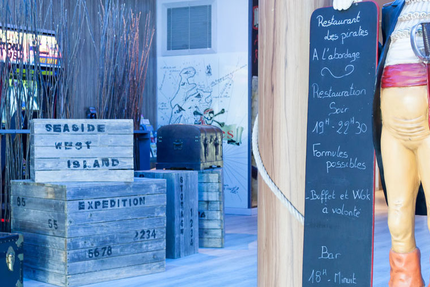 SEASIDE
WEST
ISLAND
EXPEDITION
55
55
234
5678
Restaurant
des pirates
A l'abordage
Restauration
Soir
19H-22H30
Formules
possibles
-Buffet et Wok
a volonté
Bar
18H-Minuit